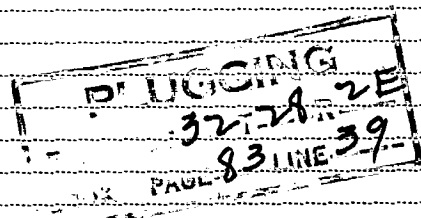 PLUGGING
32 T 28 R 2E
PAGE 83 LINE 39